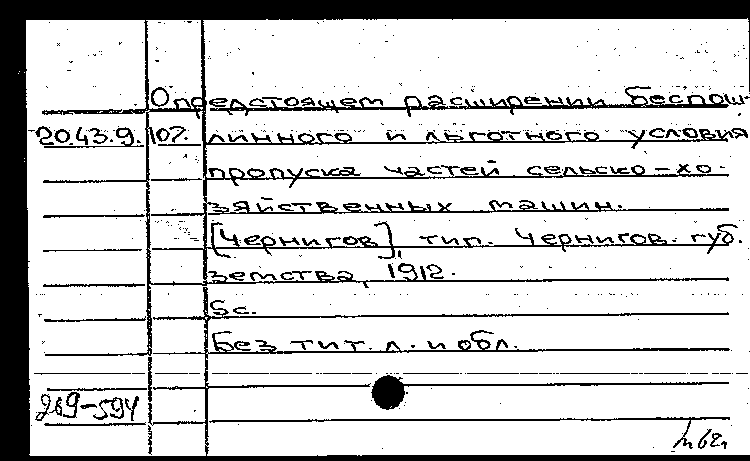 О предстоящем расширении беспош-
20.43.9.107. линного и льготного условия
пропуска частей сельско-хо-
зяйственных машин.
[Чернигов], тип. Чернигов. губ.
земства, 1912.
5с.
Без тит. л. и обл.
269-594